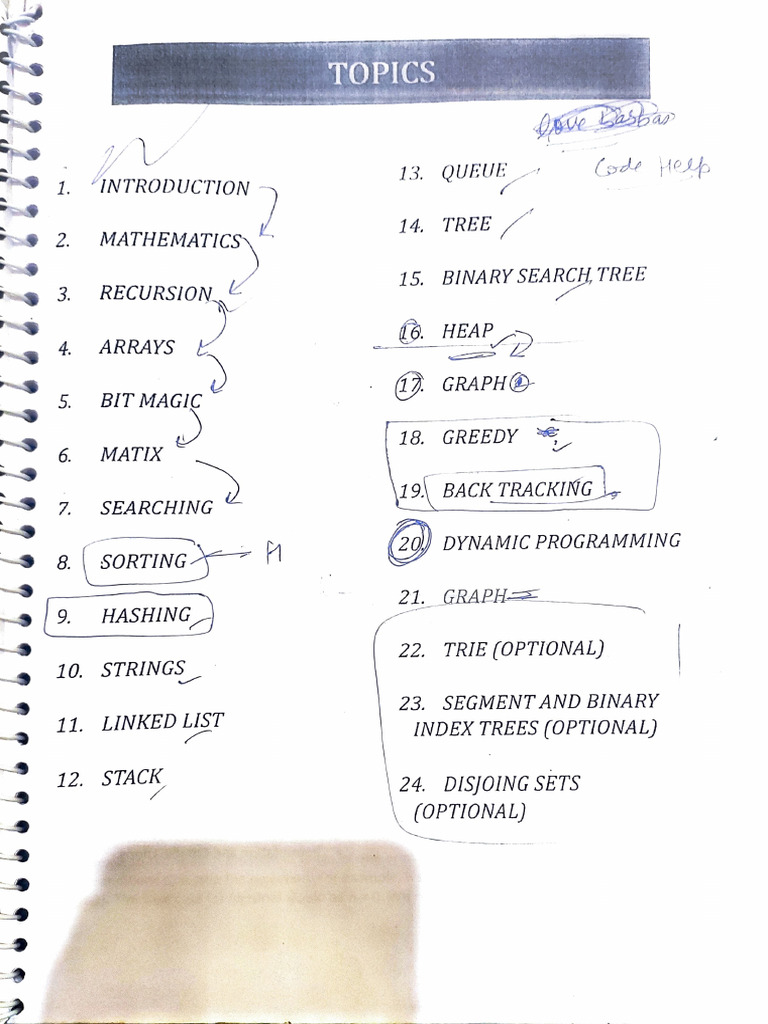 TOPICS
Love Babbar
Code Help
1. INTRODUCTION
2. MATHEMATICS
3. RECURSION
4. ARRAYS
5. BIT MAGIC
6. MATIX
7. SEARCHING
8. SORTING
9. HASHING
10. STRINGS
11. LINKED LIST
12. STACK
13. QUEUE
14. TREE
15. BINARY SEARCH TREE
16. HEAP
17. GRAPH
18. GREEDY
19. BACK TRACKING
20. DYNAMIC PROGRAMMING
21. GRAPH
22. TRIE (OPTIONAL)
23. SEGMENT AND BINARY
INDEX TREES (OPTIONAL)
24. DISJOING SETS
(OPTIONAL)